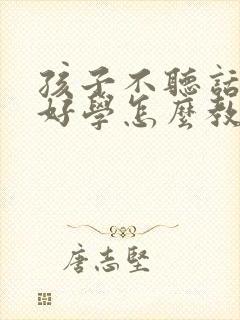 孩子不聽話
好學怎麼教
唐志堅